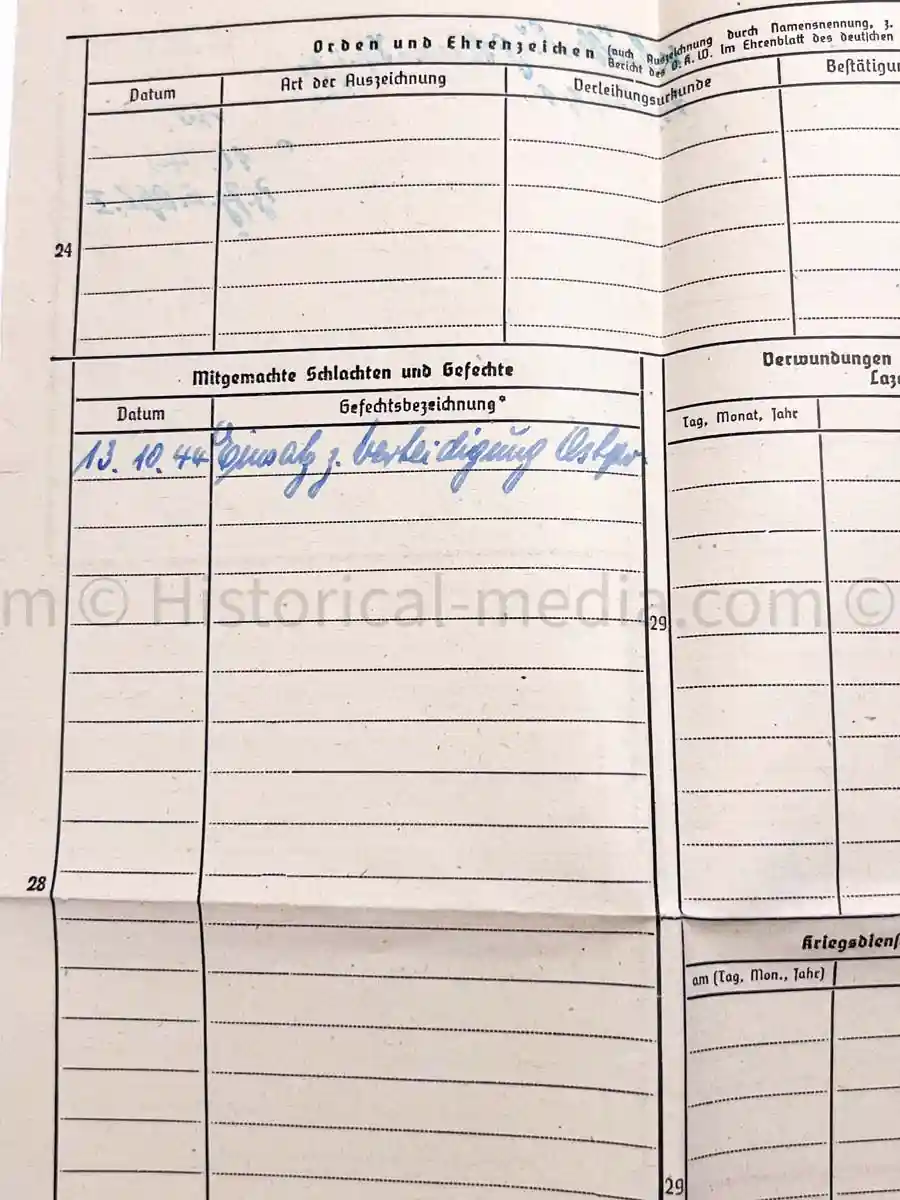 Orden und Ehrenzeichen (auch Auszeichnung durch Namensnennung, z.
Bericht des O.K.W. im Ehrenblatt des deutschen
Datum Art der Auszeichnung Verleihungsurkunde Bestätigu
24
Mitgemachte Schlachten und Gefechte
Datum Gefechtsbezeichnung*
13. 10. 44 Einsatz z. Verteidigung Ostpr.
28
Verwundungen
Laza
Tag, Monat, Jahr
29
m © Historical-media.com ©
Kriegsdiens
am (Tag, Mon., Jahr)
29